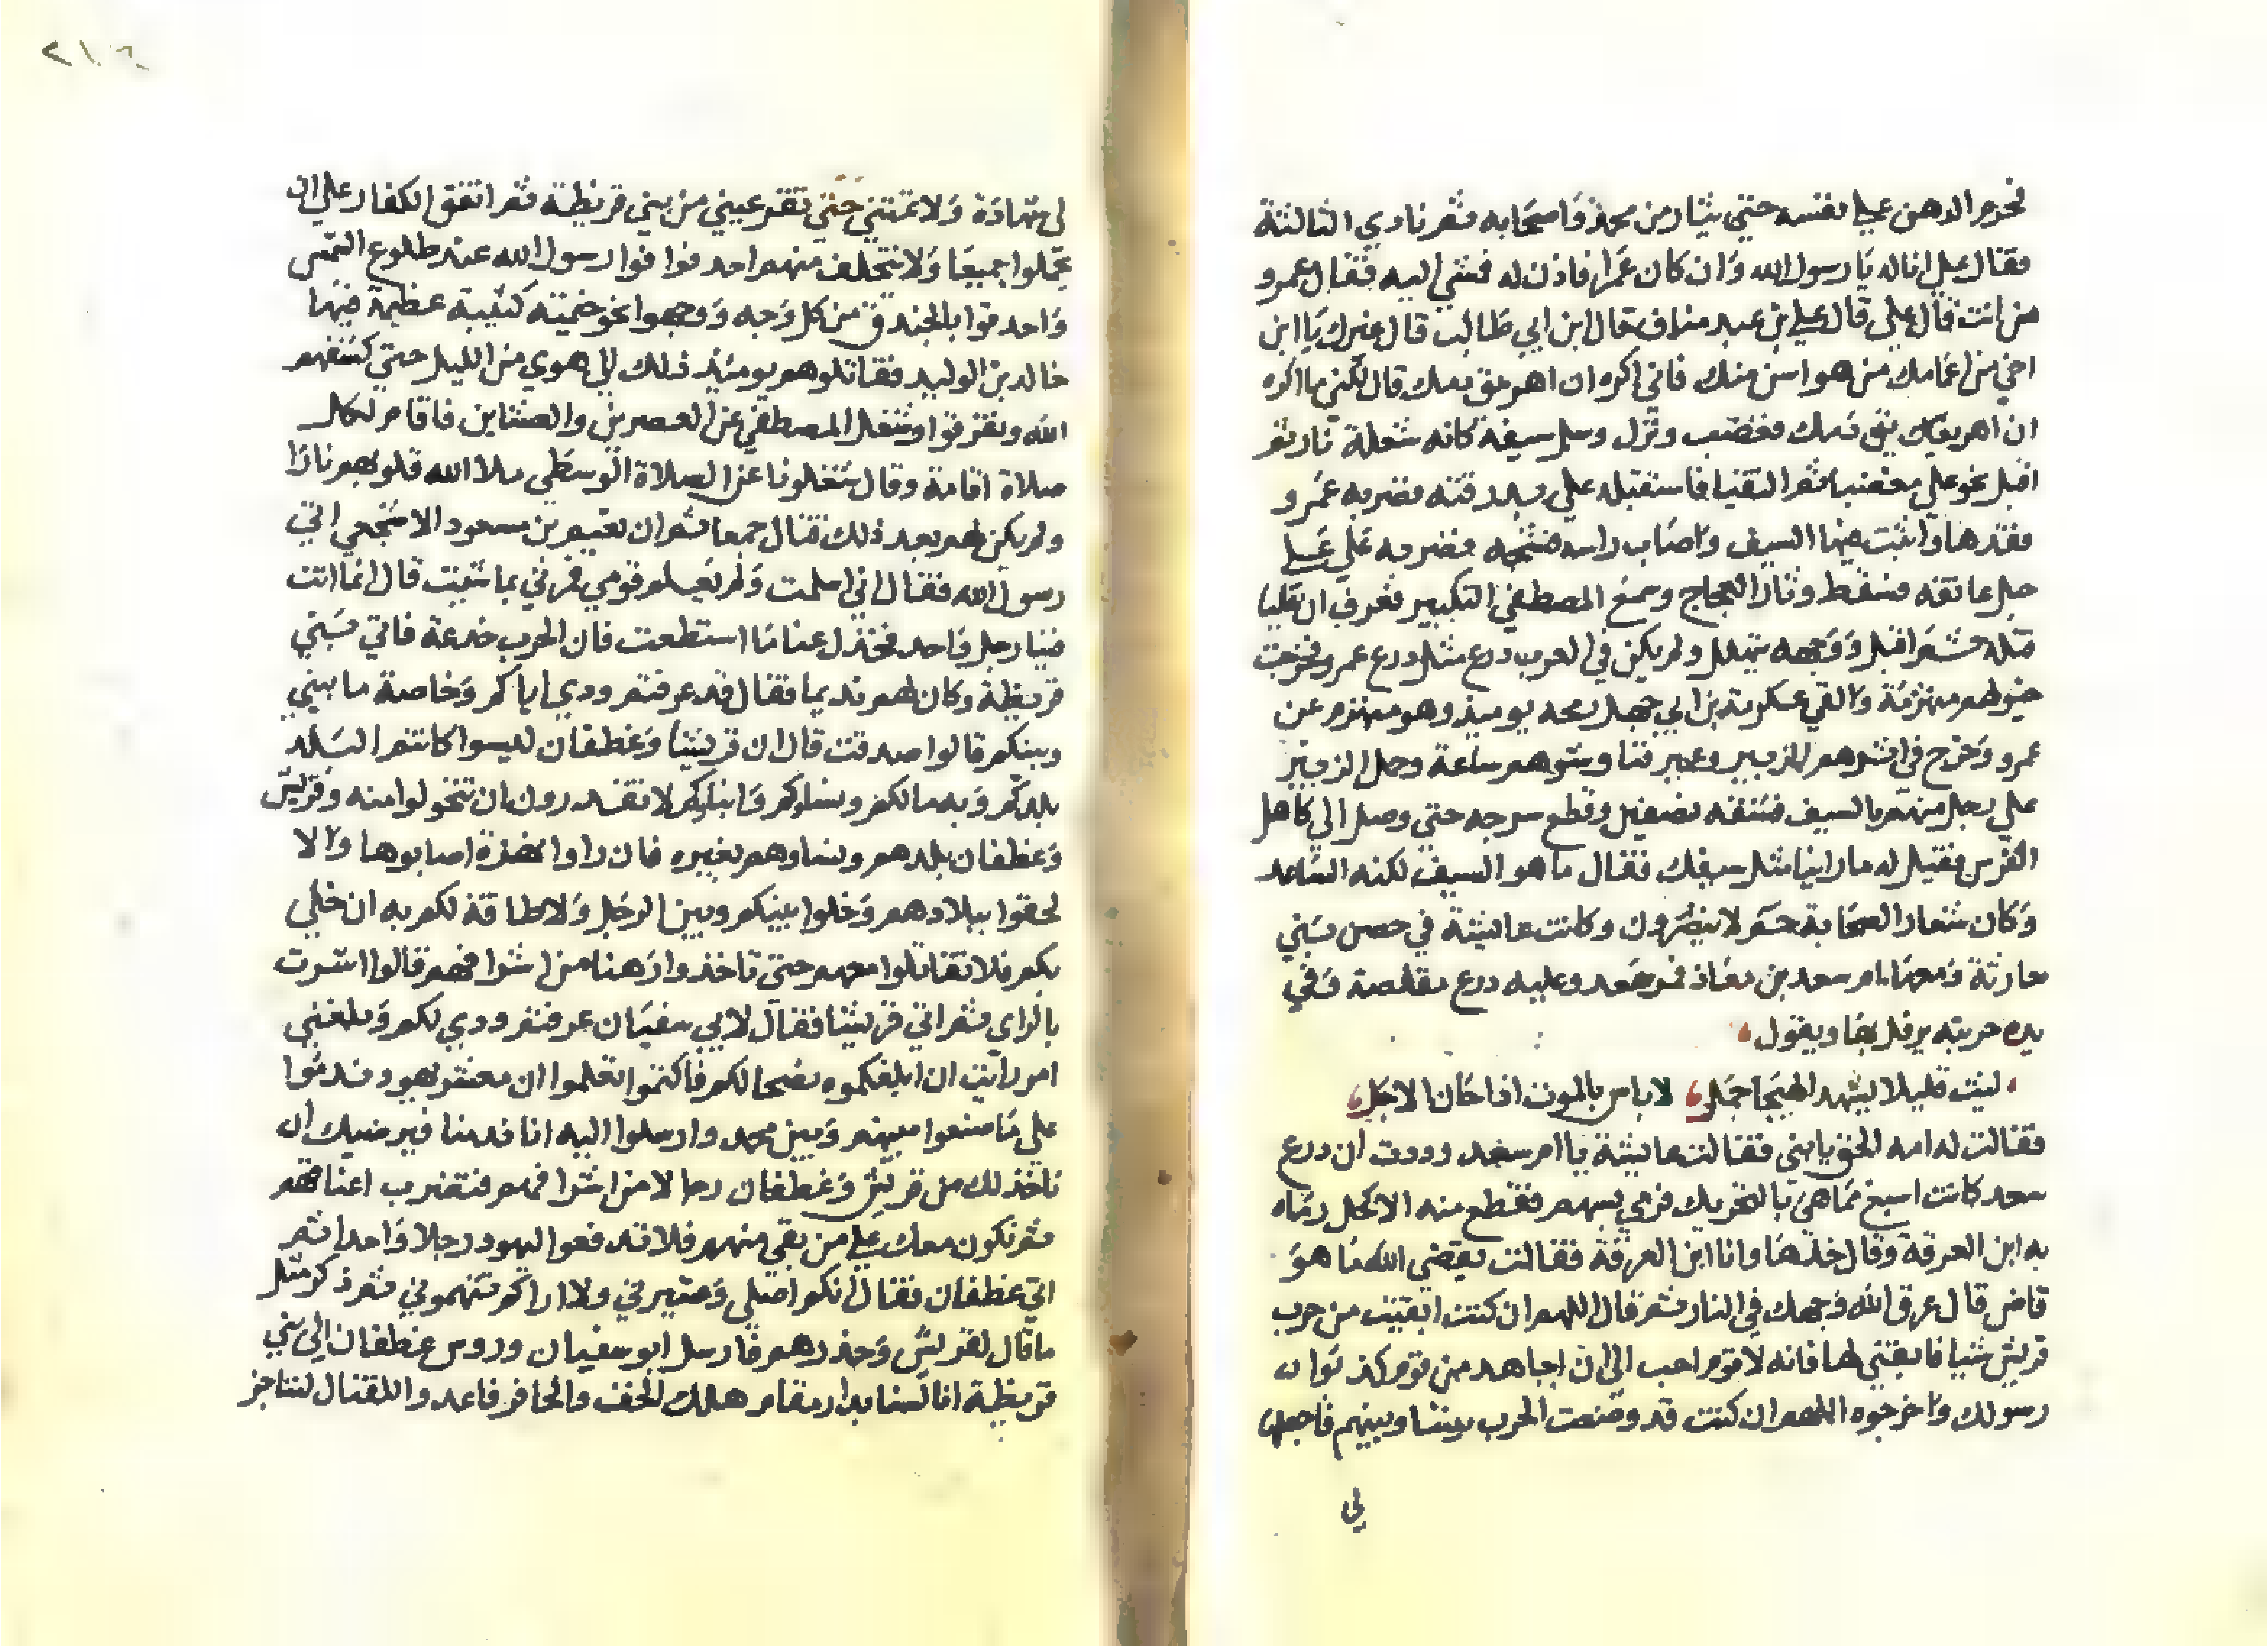 فحرم الدهن على نفسه حتى يثار من محمد واصحابه ثم نادي الثالثة
فقال علي انا له يا رسول الله وان كان عمرا فاذن له فمشي اليه فقال عمرو
من انت قال علي قال علي بن عبد مناف قال ابن ابي طالب قال غيرك يا ابن
اخي من اعمامك من هو اسن منك فاني اكره ان اهريق دمك قال لكني ما اكره
ان اهريق دمك فغضب ونزل وسل سيفه كانه شعلة نار ثم
اقبل نحو علي مغضبا ثم التقيا فاستقبله علي بدرقته فضربه عمرو
فقدها واثبت فيها السيف واصاب راسه فشجه فضربه علي علي
حبل عاتقه فسقط وثار العجاج وسمع المصطفي التكبير فعرف ان عليا
قتله ثم اقبل ووجهه يتهلل ولم يكن في العرب درع مثل درع عمرو فخرجت
خيولهم منهزمة والقي عكرمة بن ابي جهل رمحه يوميذ وهو منهزم عن
عمرو وخرج في اثرهم الزبير وعمر فناوشوهم ساعة وحمل الزبير
علي رجل منهم بالسيف فشقه نصفين وقطع سرجه حتي وصل الي كاهل
الفرس فقيل له ما راينا مثل سيفك فقال ما هو السيف لكنه الساعد
وكان شعار الصحابة حم لا ينصرون وكانت عايشة في حصن بني
حارثة ومعها ام سعد بن معاذ فمر سعد وعليه درع مقلصة وفي
يده حربته يرفل بها ويقول
لبث قليلا يشهد الهيجا حمل لا باس بالموت اذا حان الاجل
فقالت له امه الحق يا بني فقالت عايشة يا ام سعد وددت ان درع
سعد كانت اسبغ مما هي بالتحريك فرمي بسهم فقطع منه الاكحل رماه
به ابن العرقة وقال خذها وانا ابن العرقة فقالت يقضي الله ما هو
قاض قال عرق الله وجهك في النار ثم قال اللهم ان كنت ابقيت من حرب
قريش شيا فابقني لها فانه لا قوم احب الي ان اجاهد من قوم كذبوا
رسولك واخرجوه اللهم ان كنت قد وضعت الحرب بيننا وبينهم فاجعلها
لي
لي شهادة ولا تمتني حتي تقر عيني من بني قريظة ثم اتفق الكفار علي ان
يحملوا جميعا ولا يتخلف منهم احد فوافوا رسول الله عند طلوع الشمس
واحدقوا بالخندق من كل وجه ووجهوا نحو خيمته كتيبة عظيمة فيها
خالد بن الوليد فقاتلوهم يومئذ ذلك الي هوي من الليل حتي كشفهم
الله وتفرقوا وشغل المصطفي عن العصرين والعشاين فاقام لكل
صلاة اقامة وقال شغلونا عن الصلاة الوسطي ملا الله قلوبهم نارا
ولم يكن لهم بعد ذلك قتال جمعا ثم ان نعيم بن مسعود الاشجعي اتي
رسول الله فقال اني اسلمت ولم يعلم قومي فمرني بما شيت قال انما انت
فينا رجل واحد فخذل عنا ما استطعت فان الحرب خدعة فاتي بني
قريظة وكان لهم نديما فقال قد عرفتم ودي اياكم وخاصة ما بيني
وبينكم قالوا صدقت قال ان قريشا وغطفان ليسوا كانتم البلد
بلدكم وبه مالكم ونساوكم وابناوكم لا تقدرون ان تتحولوا منه وقريش
وغطفان بلدهم ونساوهم بغيره فان راوا نهزة اصابوها والا
لحقوا ببلادهم وخلوا بينكم وبين الرجل ولا طاقة لكم به ان خلي
بكم فلا تقاتلوا معهم حتي تاخذوا رهنا من اشرافهم قالوا اشرت
بالراي ثم اتي قريشا فقال لابي سفيان عرفتم ودي لكم وبلغني
امر رايت ان ابلغكموه نصحا لكم فاكتموا تعلموا ان معشر يهود ندموا
علي ما صنعوا بينهم وبين محمد وارسلوا اليه انا ندمنا فيرضيك ان
ناخذ لك من قريش وغطفان رجالا من اشرافهم فتضرب اعناقهم
ثم نكون معك علي من بقي منهم فلا تدفعوا اليهود رجلا واحدا ثم
اتي غطفان فقال انكم اصلي وعشيرتي ولا اراكم تتهموني ثم ذكر مثل
ما قال لقريش وحذرهم فارسل ابو سفيان وروس غطفان الي بني
قريظة انا لسنا بدار مقام هلك الخف والحافر فاعدوا للقتال لنناجز